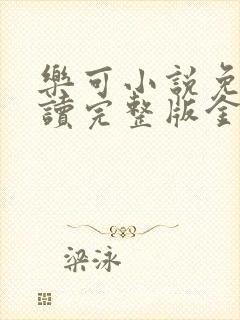 樂可小說免
讀完整版全
梁泳